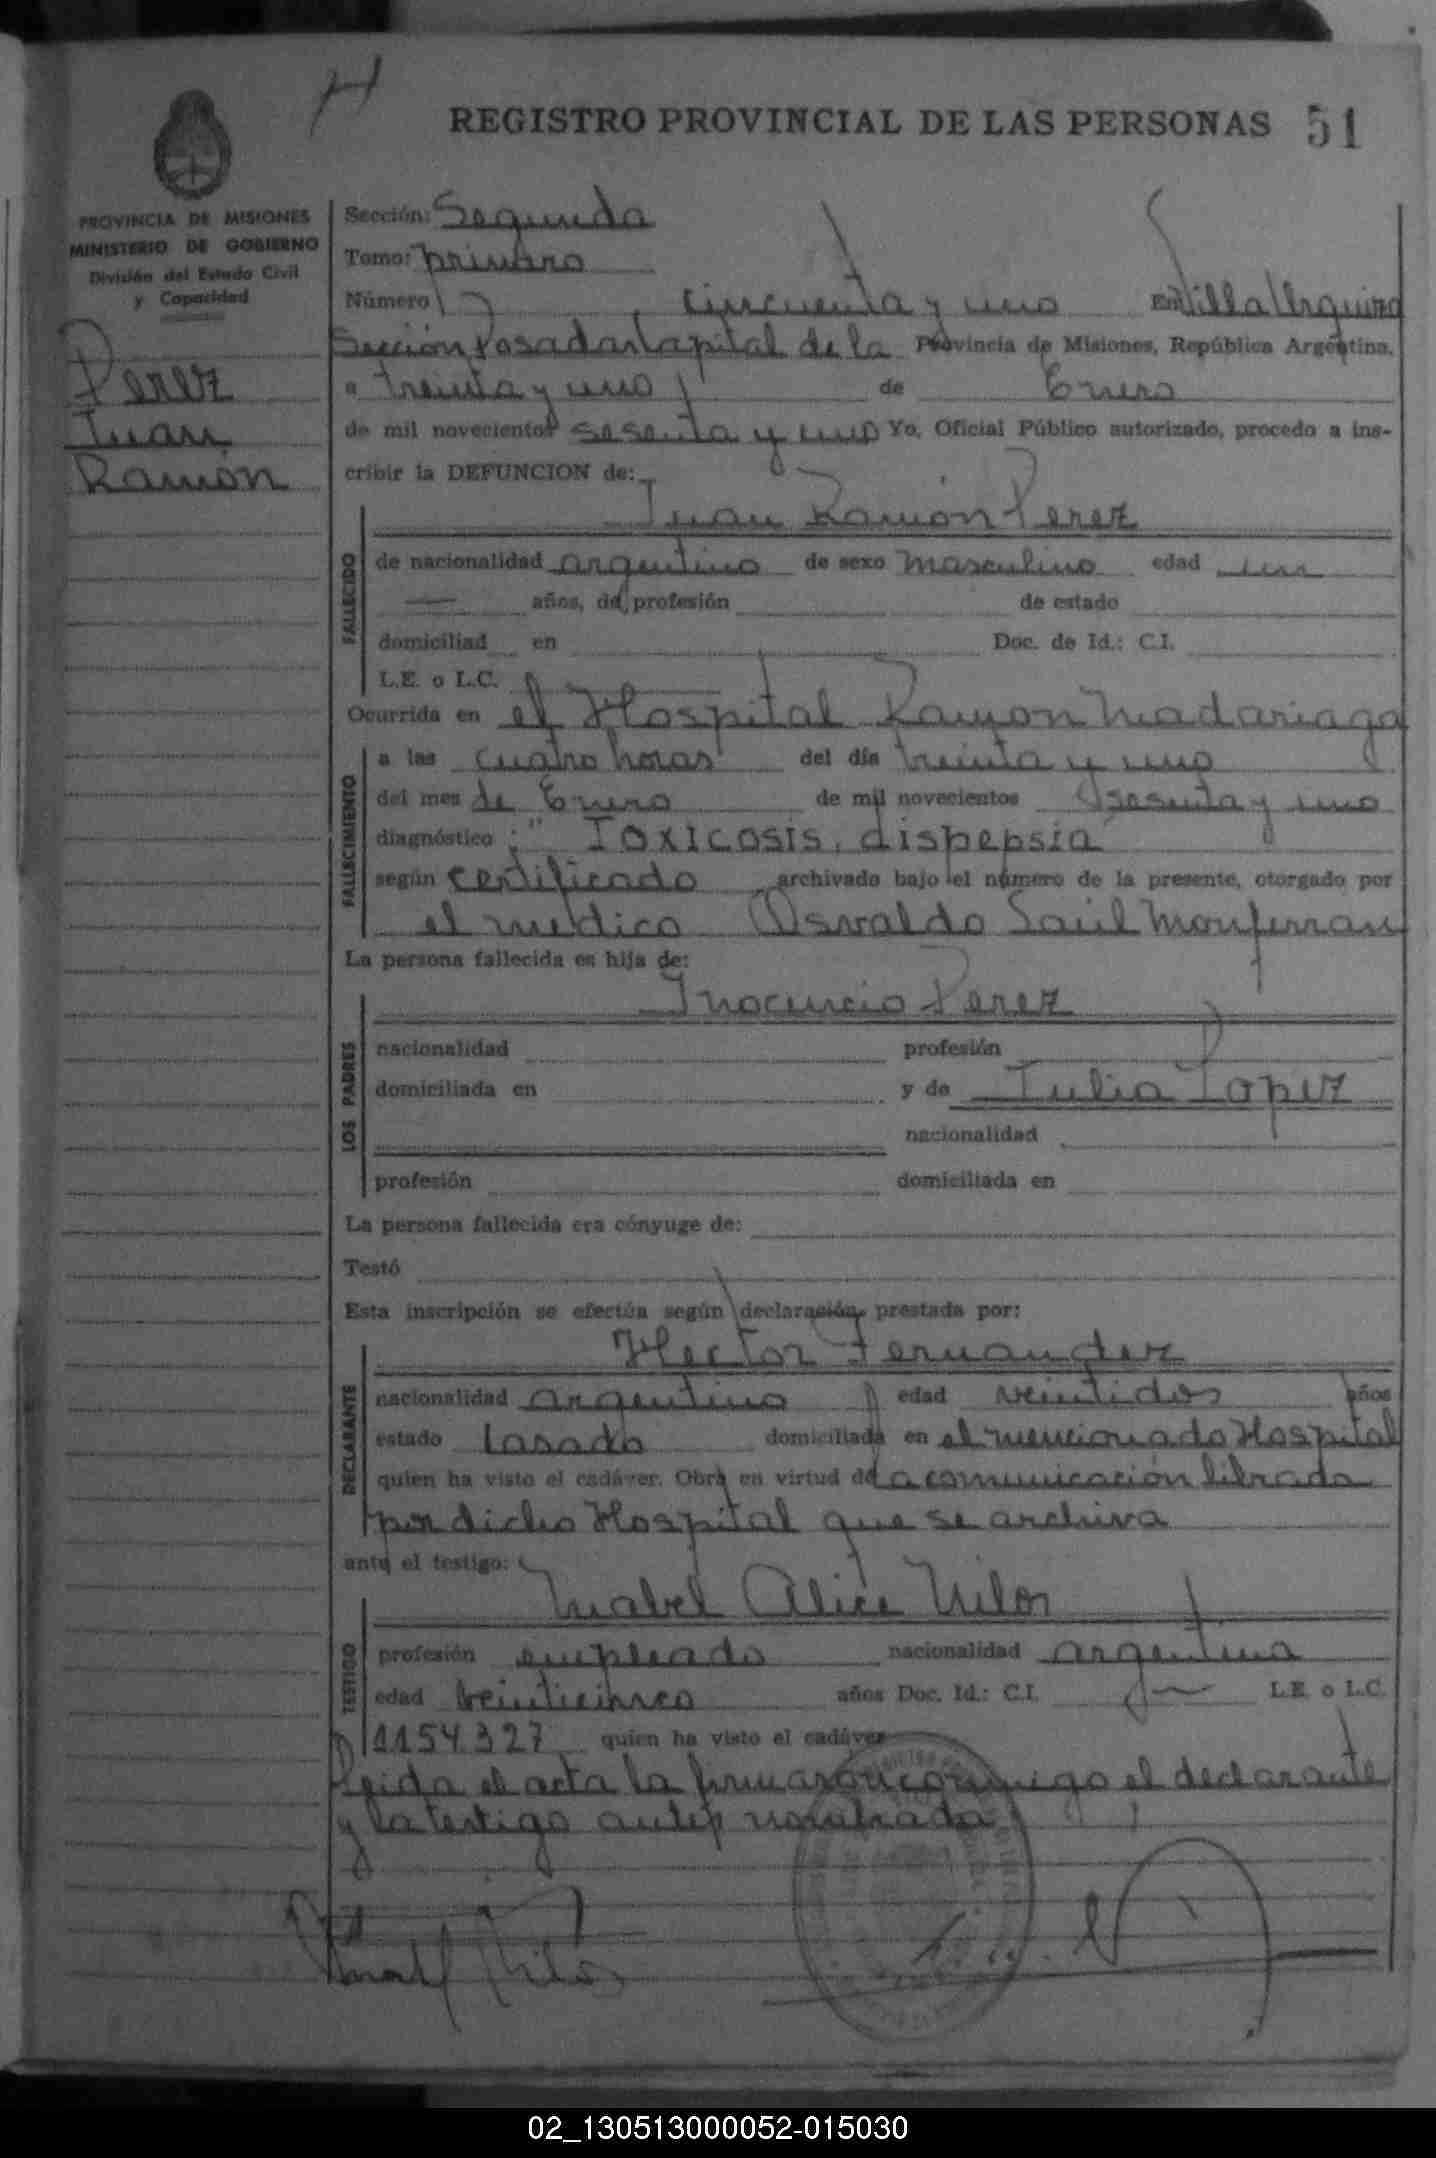 REGISTRO PROVINCIAL DE LAS PERSONAS 51
PROVINCIA DE MISIONES
MINISTERIO DE GOBIERNO
División del Estado Civil
y Capacidad
Perez
Juan
Ramón
Sección: Segunda
Tomo: primero
Número cincuenta y uno En Villa Urquiza
Sección Posadas Capital de la Provincia de Misiones, República Argentina,
a treinta y uno de Enero
de mil novecientos sesenta y uno Yo, Oficial Público autorizado, procedo a ins-
cribir la DEFUNCION de:
Juan Ramón Perez
FALLECIDO
de nacionalidad argentino de sexo masculino edad un
— años, de profesión de estado
domiciliad en Doc. de Id.: C.I.
L.E. o L.C.
Ocurrida en el Hospital Ramon Madariaga
FALLECIMIENTO
a las cuatro horas del día treinta y uno
del mes de Enero de mil novecientos sesenta y uno
diagnóstico : " Toxicosis, dispepsia
según certificado archivado bajo el número de la presente, otorgado por
el medico Osvaldo Saúl Monferran
La persona fallecida es hija de:
LOS PADRES
Inocencio Perez
nacionalidad profesión
domiciliada en y de Julia Lopez
nacionalidad
profesión domiciliada en
La persona fallecida era cónyuge de:
Testó
Esta inscripción se efectúa según declaración prestada por:
DECLARANTE
Hector Fernandez
nacionalidad argentino edad veintidos años
estado Casado domiciliada en el mencionado Hospital
quien ha visto el cadáver. Obra en virtud de la comunicación librada
por dicho Hospital que se archiva
ante el testigo:
TESTIGO
Mabel Alice Nilos
profesión empleado nacionalidad argentina
edad veinticinco años Doc. Id.: C.I. — L.E. o L.C.
1154327 quien ha visto el cadáver
Leida el acta la firmaron conmigo el declarante
y la testigo antes nombrada
02_130513000052-015030